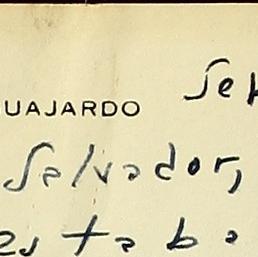 UAJARDO
Salvador,
estaba